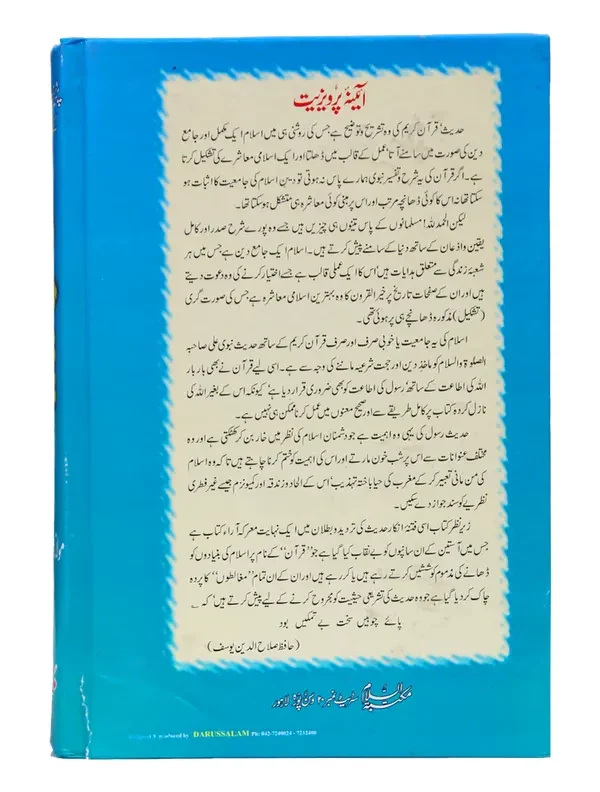 آئینۂ پرویزیت
حدیث، قرآن کریم کی وہ تشریح و توضیح ہے جس کی روشنی ہی میں اسلام ایک مکمل اور جامع
دین کی صورت میں سامنے آتا، عمل کے قالب میں ڈھلتا اور ایک اسلامی معاشرے کی تشکیل کرتا
ہے۔ اگر قرآن کی یہ شرح و تفسیر نبوی ہمارے پاس نہ ہوتی تو دین اسلام کی جامعیت کا اثبات ہو
سکتا تھا نہ اس کا کوئی ڈھانچہ مرتب اور اس پر مبنی کوئی معاشرہ ہی متشکل ہو سکتا تھا۔
لیکن الحمدللہ! مسلمانوں کے پاس تینوں ہی چیزیں ہیں جسے وہ پورے شرح صدر اور کامل
یقین و اذعان کے ساتھ دنیا کے سامنے پیش کرتے ہیں۔ اسلام ایک جامع دین ہے جس میں ہر
شعبۂ زندگی سے متعلق ہدایات ہیں، اس کا ایک عملی قالب ہے جسے اختیار کرنے کی وہ دعوت دیتے
ہیں اور ان کے صفحات تاریخ پر خیر القرون کا وہ بہترین اسلامی معاشرہ ہے جس کی صورت گری
(تشکیل) مذکورہ ڈھانچے ہی پر ہوئی تھی۔
اسلام کی یہ جامعیت یا خوبی صرف اور صرف قرآن کریم کے ساتھ حدیث نبوی علی صاحبہ
الصلوۃ والسلام کو ماخذ دین اور حجت شرعیہ ماننے کی وجہ سے ہے۔ اسی لیے قرآن نے بھی بار بار
اللہ کی اطاعت کے ساتھ رسول کی اطاعت کو بھی ضروری قرار دیا ہے، کیونکہ اس کے بغیر اللہ کی
نازل کردہ کتاب پر کامل طریقے سے اور صحیح معنوں میں عمل کرنا ممکن ہی نہیں ہے۔
حدیث رسول کی یہی وہ اہمیت ہے جو دشمنان اسلام کی نظر میں خار بن کر کھٹکتی ہے اور وہ
مختلف عنوانات سے اس پر شب خون مارتے اور اس کی اہمیت کو ختم کرنا چاہتے ہیں تاکہ وہ اسلام
کی من مانی تعبیر کر کے مغرب کی حیا باختہ تہذیب، اس کے الحاد و زندقہ اور کمیونزم جیسے غیر فطری
نظریے کو سند جواز دے سکیں۔
زیر نظر کتاب اسی فتنۂ انکار حدیث کی تردید و بطلان میں ایک نہایت معرکہ آراء کتاب ہے
جس میں آستین کے ان سانپوں کو بے نقاب کیا گیا ہے جو "قرآن" کے نام پر اسلام کی بنیادوں کو
ڈھانے کی مذموم کوششیں کرتے رہے ہیں یا کر رہے ہیں اور ان کے ان تمام "مغالطوں" کا پردہ
چاک کر دیا گیا ہے جو وہ حدیث کی تشریعی حیثیت کو مجروح کرنے کے لیے پیش کرتے ہیں، کہ
پائے چوبیں سخت بے تمکیں بود
(حافظ صلاح الدین یوسف)
مکتبۃ السلام سٹریٹ نمبر ۲۰ وسن پورہ لاہور
produced by DARUSSALAM Ph: 042-7240024 - 7232400